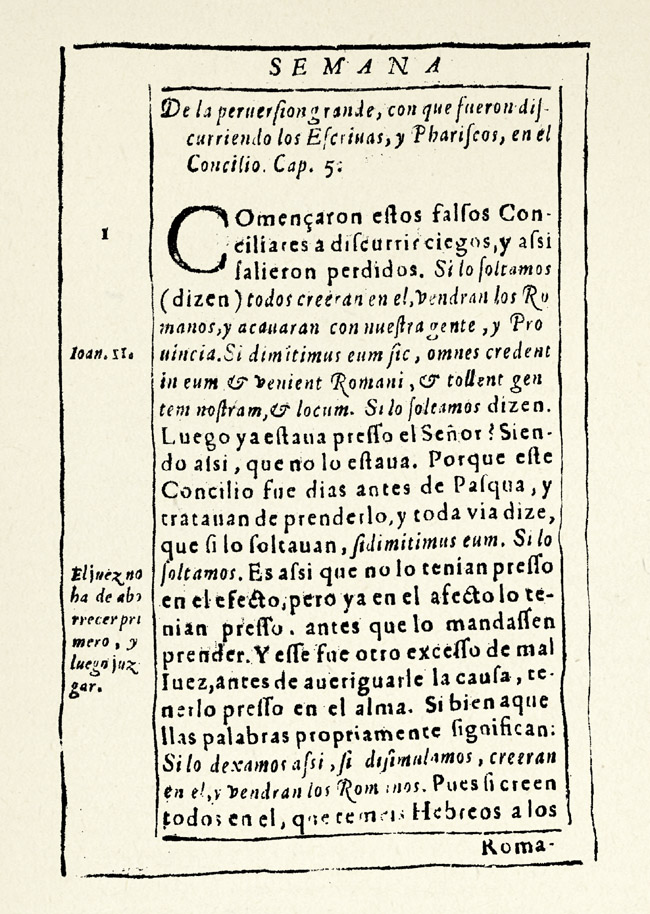 SEMANA
De la peruersion grande, con que fueron dis-
curriendo los Escriuas, y Phariseos, en el
Concilio. Cap. 5.
1
COmençaron estos falsos Con-
ciliares a discurrir ciegos, y assi
salieron perdidos. Si lo soltamos
(dizen) todos creeran en el, vendran los Ro
manos, y acauaran con nuestra gente, y Pro
Ioan. 11.
uincia. Si dimitimus eum sic, omnes credent
in eum & venient Romani, & tollent gen
tem nostram, & locum. Si lo soltamos dizen.
Luego ya estaua presso el Señor? Sien-
do assi, que no lo estaua. Porque este
Concilio fue dias antes de Pasqua, y
tratauan de prenderlo, y toda via dize,
que si lo soltauan, si dimitimus eum. Si lo
soltamos. Es assi que no lo tenian presso
en el efecto, pero ya en el afecto lo te-
nian presso. antes que lo mandassen
prender. Y esse fue otro excesso de mal
Iuez, antes de aueriguarle la causa, te-
nerlo presso en el alma. Si bien aque
llas palabras propriamente significan:
Si lo dexamos assi, si disimulamos, creeran
en el, y vendran los Romanos. Pues si creen
todos en el, que temeis Hebreos a los
El juez no
ha de abo
rrecer pri
mero, y
luego juz
gar.
Roma-